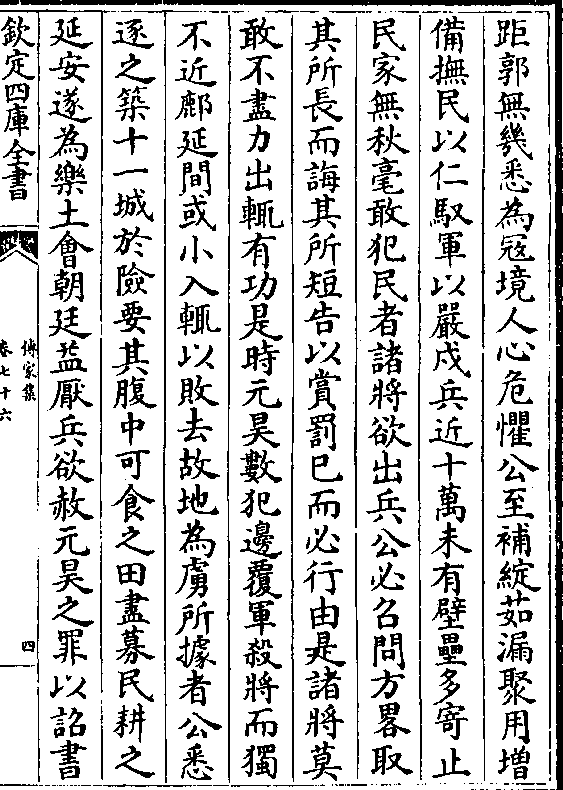 距郭無幾悉為冦境人心危懼公至補綻茹漏聚用増
備撫民以仁馭軍以嚴戍兵近十萬未有壁壘多寄止
民家無秋毫敢犯民者諸將欲出兵公必召問方畧取
其所長而誨其所短告以賞罰已而必行由是諸將莫
敢不盡力出輒有功是時元昊數犯邊覆軍殺將而獨
不近鄜延間或小入輒以敗去故地為虜所據者公悉
逐之築十一城於險要其腹中可食之田盡募民耕之
延安遂為樂土會朝廷益厭兵欲赦元昊之罪以詔書
欽定四庫全書
傳家集
卷七十六
四